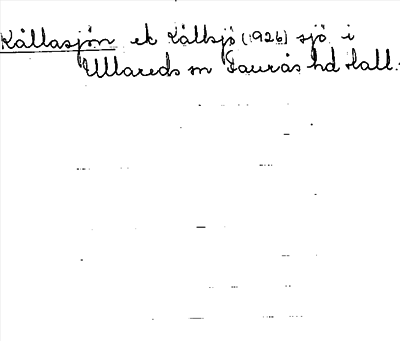 Kållasjön ek Kållsjö (1926) sjö i
Ullareds sn Faurås hd Hall.